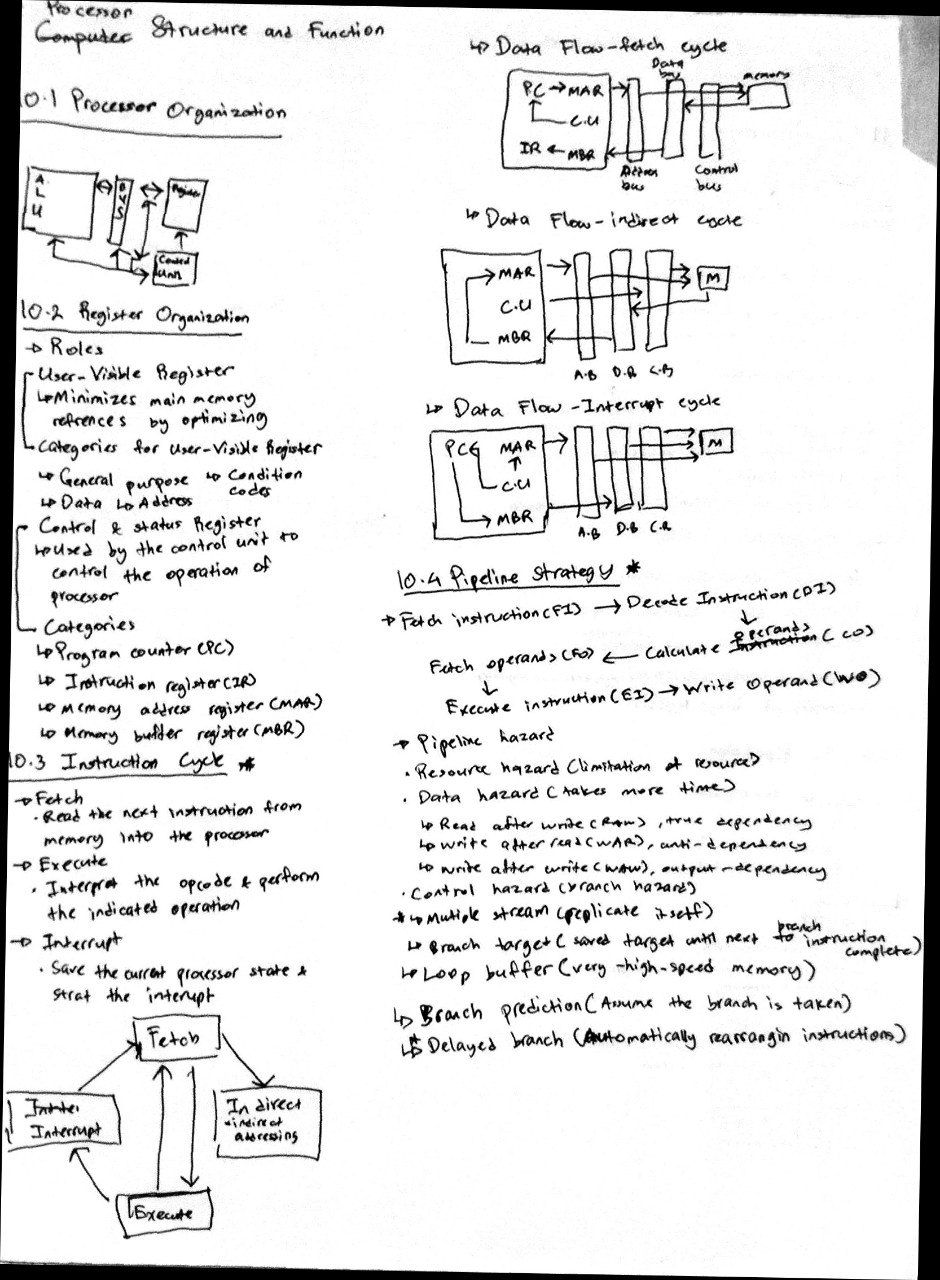 Processor
Computer Structure and Function
10.1 Processor Organization
ALU
BUS
Register
Control Unit
10.2 Register Organization
→ Roles
User-Visible Register
↳ Minimizes main memory
refrences by optimizing
Categories for User-Visible Register
↳ General purpose ↳ Condition codes
↳ Data ↳ Address
Control & status Register
↳ Used by the control unit to
control the operation of
processor
Categories
↳ Program counter (PC)
↳ Instruction register (IR)
↳ Memory address register (MAR)
↳ Memory buffer register (MBR)
10.3 Instruction Cycle *
→ Fetch
· Read the next instruction from
memory into the processor
→ Execute
· Interpret the opcode & perform
the indicated operation
→ Interrupt
· Save the current processor state &
strat the interupt
Fetch
Interrupt
Indirect
· indirect
addressing
Execute
↳ Data Flow - fetch cycle
Data bus
memory
PC → MAR
C.U
IR ← MBR
Address bus
Control bus
↳ Data Flow - indirect cycle
MAR
C.U
MBR
M
A.B D.B C.B
↳ Data Flow - Interrupt cycle
PC MAR
C.U
MBR
M
A.B D.B C.B
10.4 Pipeline Strategy *
→ Fetch instruction (FI) → Decode Instruction (DI)
↓
Fetch operands (FO) ← Calculate operands Instruction (CO)
↓
Execute instruction (EI) → Write Operand (WO)
→ Pipeline hazard
· Resource hazard (limitation of resource)
· Data hazard (takes more time)
↳ Read after write (RAW), true dependency
↳ Write after read (WAR), anti-dependency
↳ write after write (WAW), output-dependency
· Control hazard (branch hazard)
* ↳ Mutiple stream (replicate itself)
↳ Branch target (saved target until next branch instruction complete)
↳ Loop buffer (very-high-speed memory)
↳ Branch prediction (Assume the branch is taken)
↳ * Delayed branch (Automatically rearrangin instructions)